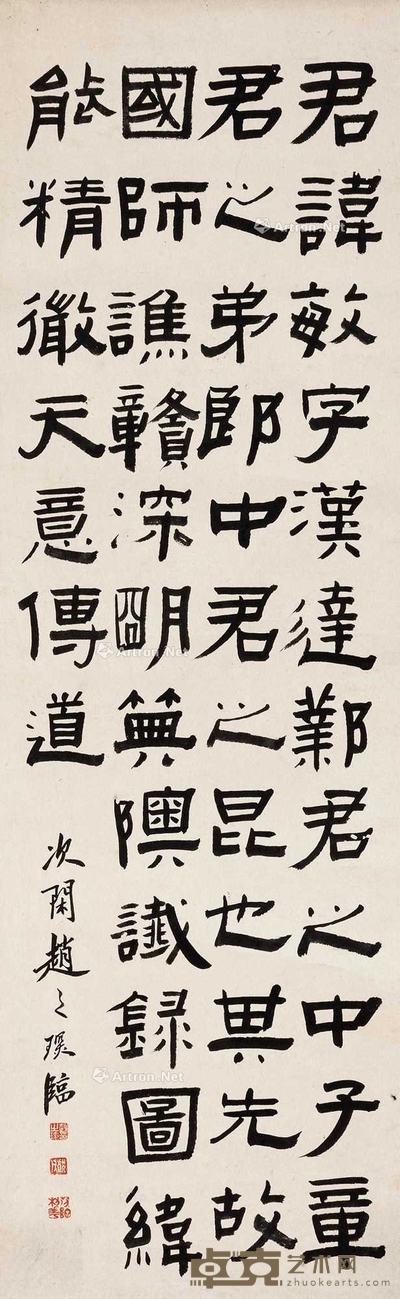 君諱敏字漢達鄴君之中子童
君之弟郎中君之昆也其先故
國師譙贛深明典隩讖錄圖緯
能精微天意傳道
次閑趙之琛臨
Artron.Net
卓克艺术网
zhuokearts.com